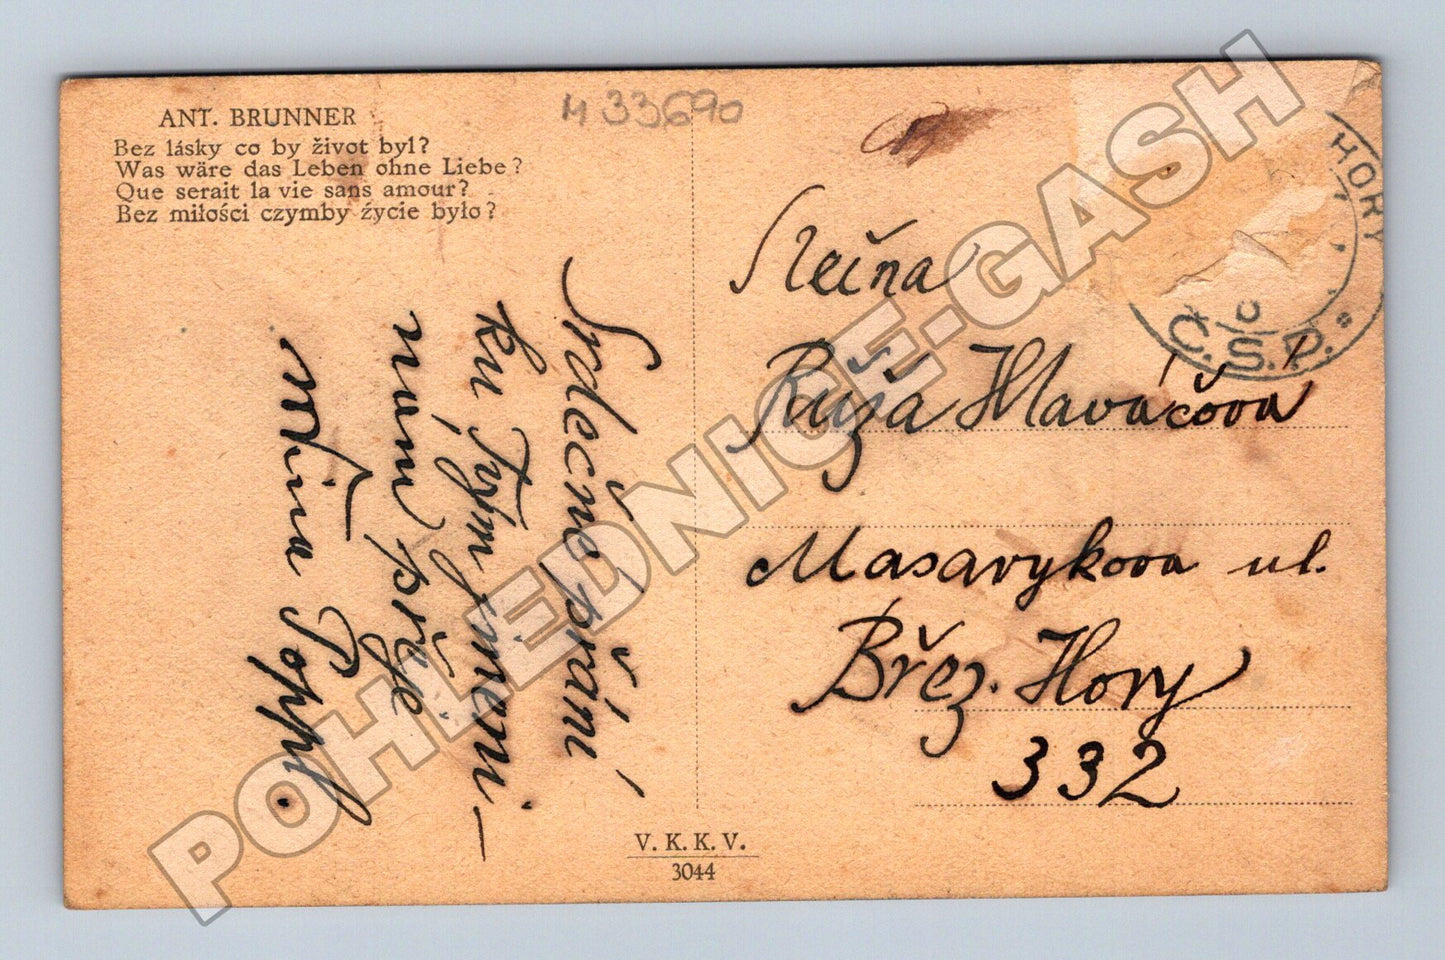 ANT. BRUNNER
Bez lásky co by život byl?
Was wäre das Leben ohne Liebe?
Que serait la vie sans amour?
Bez miłości czymby życie było?
M 33690
HORY
C.S.P.
Slečna
Růža Hlaváčová
Masarykova ul.
Břez. Hory
332
Srdečné přání
ku Jejím
nám přeje
Poppl.
V. K. K. V.
3044
POHLEDNICE-GASH